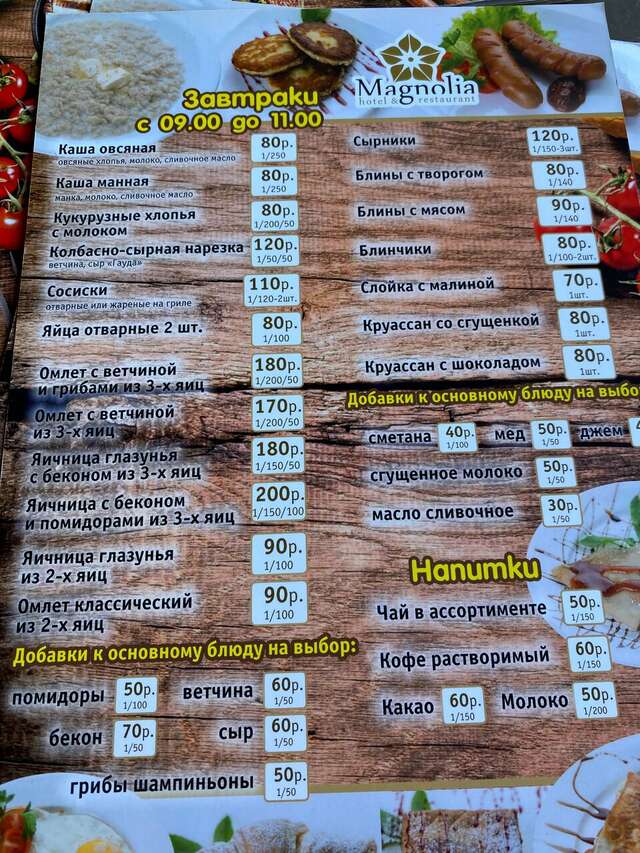 Magnolia
hotel & restaurant
Завтраки
с 09.00 до 11.00
Каша овсяная 80р.
овсяные хлопья, молоко, сливочное масло 1/250
Каша манная 80р.
манка, молоко, сливочное масло 1/250
Кукурузные хлопья 80р.
с молоком 1/200/50
Колбасно-сырная нарезка 120р.
ветчина, сыр «Гауда» 1/50/50
Сосиски 110р.
отварные или жареные на гриле 1/120-2шт.
Яйца отварные 2 шт. 80р.
1/100
Омлет с ветчиной 180р.
и грибами из 3-х яиц 1/200/50
Омлет с ветчиной 170р.
из 3-х яиц 1/200/50
Яичница глазунья 180р.
с беконом из 3-х яиц 1/150/50
Яичница с беконом 200р.
и помидорами из 3-х яиц 1/150/100
Яичница глазунья 90р.
из 2-х яиц 1/100
Омлет классический 90р.
из 2-х яиц 1/100
Добавки к основному блюду на выбор:
помидоры 50р. ветчина 60р.
1/100 1/50
бекон 70р. сыр 60р.
1/50 1/50
грибы шампиньоны 50р.
1/50
Сырники 120р.
1/150-3шт.
Блины с творогом 80р.
1/140
Блины с мясом 90р.
1/140
Блинчики 80р.
1/100-2шт.
Слойка с малиной 70р.
1шт.
Круассан со сгущенкой 80р.
1шт.
Круассан с шоколадом 80р.
1шт.
Добавки к основному блюду на выбо
сметана 40р. мед 50р. джем
1/100 1/50
сгущенное молоко 50р.
1/50
масло сливочное 30р.
1/50
Напитки
Чай в ассортименте 50р.
1/150
Кофе растворимый 60р.
1/150
Какао 60р. Молоко 50р.
1/150 1/200